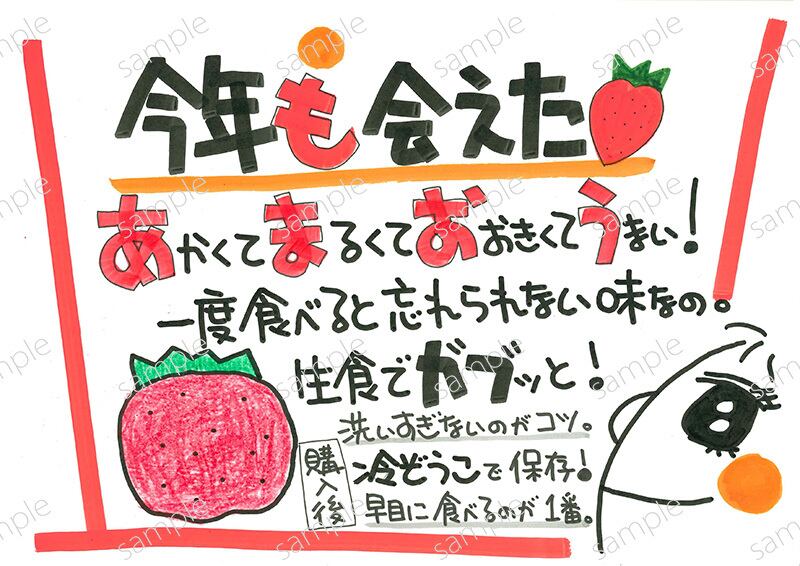 今年も会えた
あかくてまるくておおきくてうまい!
一度食べると忘れられない味なの。
生食でガブッと!
洗いすぎないのがコツ。
購入後
冷ぞうこで保存!
早目に食べるのが1番。
sample